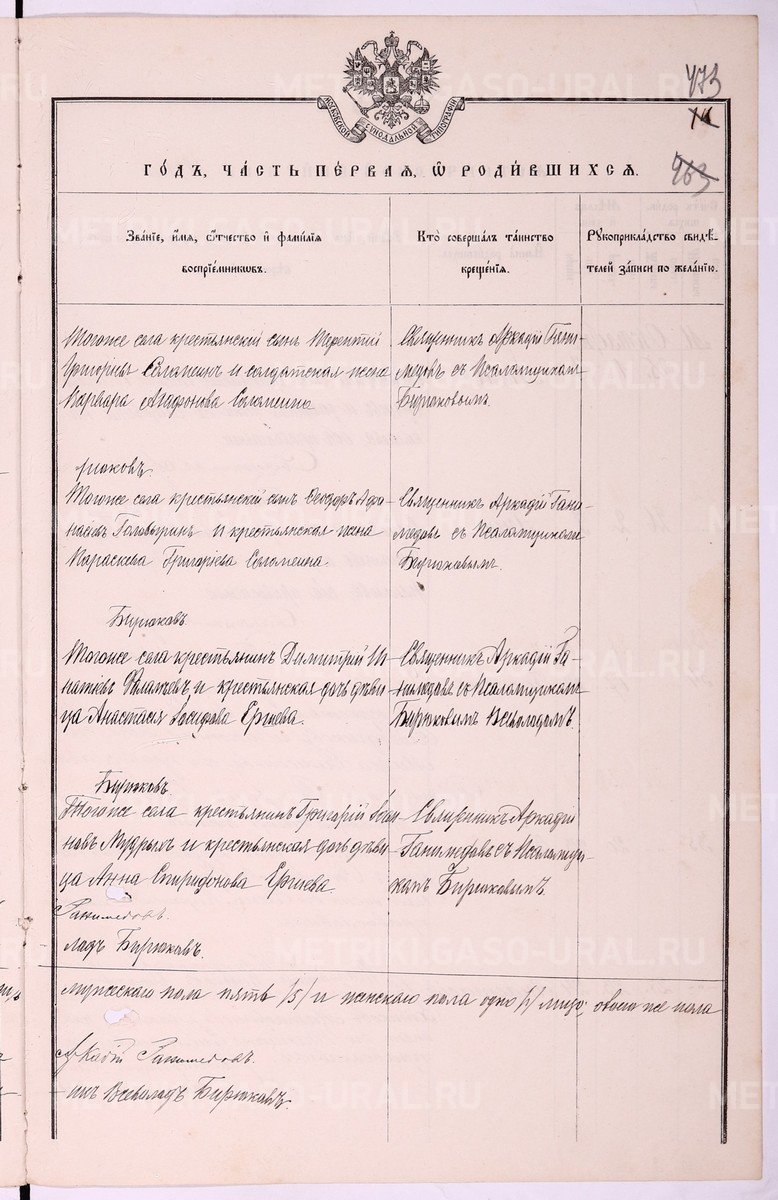 473
463
МОСКОВСКОЙ СѴНОДАЛЬНОЙ ТИПОГРАФІИ
ГОДЪ, ЧАСТЬ ПЕРВАЯ, Ѡ РОДИВШИХСЯ.
Званіе, имя, отчество и фамилія
воспріемниковъ.
Кто совершалъ таинство
крещенія.
Рукоприкладство свидѣ-
телей записи по желанію.
Тогоже села крестьянскій сынъ Терентій
Григорьевъ и солдатская жена
Варвара Агафонова Соломеина
Священникъ Аркадій Гани-
медовъ съ Псаломщикомъ
Бирюковымъ.
рюковъ.
Тогоже села крестьянскій сынъ Ѳеодоръ Афа-
насіевъ и крестьянская жена
Параскева Григоріева Соломеина.
Священникъ Аркадій Гани-
медовъ съ Псаломщикомъ
Бирюковымъ.
Бирюковъ.
Тогоже села крестьянинъ Димитрій Иг-
натіевъ и крестьянская дочь дѣви-
ца Анастасія Іосифова Ергіева.
Священникъ Аркадій Га-
нимедовъ съ Псаломщикомъ
Бирюковымъ Всеволодомъ.
Бирюковъ.
Тогоже села крестьянинъ Григорій
новъ Мудрыхъ и крестьянская дочь дѣви-
ца Анна Спиридонова Ергіева.
Священникъ Аркадій
Ганимедовъ съ Псаломщи-
комъ Бирюковымъ.
Ганимедовъ.
ладъ Бирюковъ.
мужескаго пола пять /5/ и женскаго пола одно /1/ лицо, обоего же пола
Аркадій Ганимедовъ.
икъ Всеволодъ Бирюковъ.
METRIKI.GASO-URAL.RU